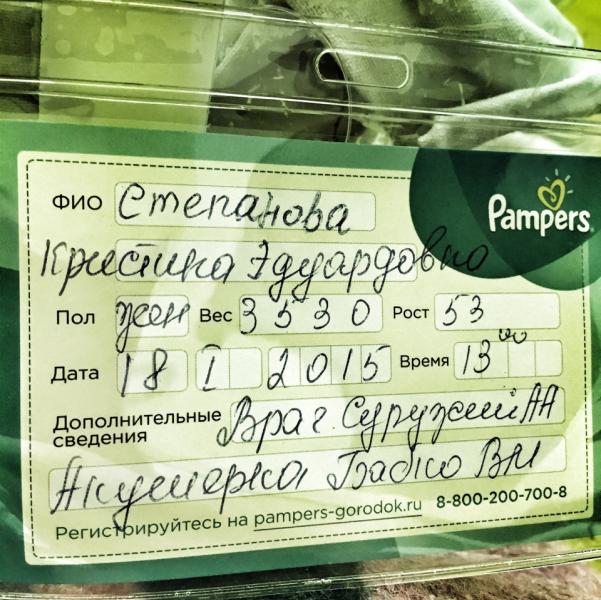 Pampers
ФИО Степанова
Кристина Эдуардовна
Пол жен Вес 3530 Рост 53
Дата 18 I 2015 Время 13 00
Дополнительные сведения Врач АА
Акушерка Бабко ВМ
Регистрируйтесь на pampers-gorodok.ru 8-800-200-700-8